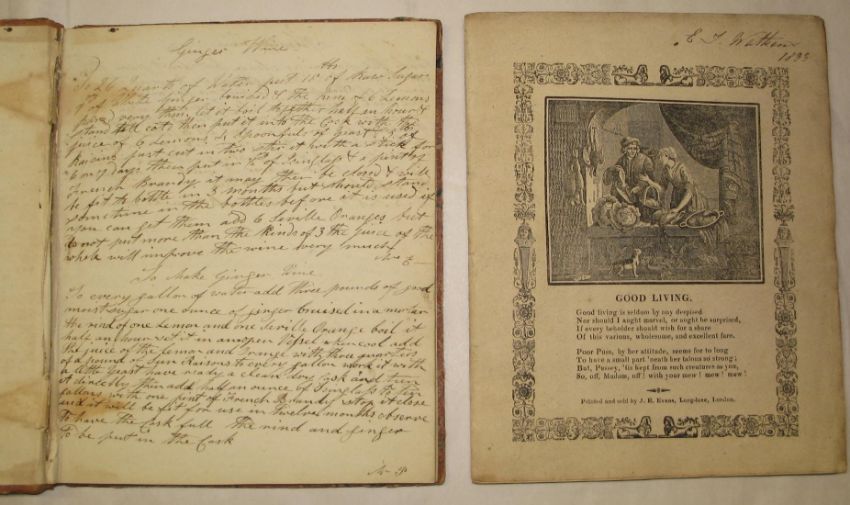 Ginger Wine
To 26 Quarts of Water put 18 lbs of Raw Sugar
of White Ginger bruised & the rind of 6 Lemons
pared very thin, let it boil together half an hour &
stand till cold then put it into the Cask with the
juice of 6 Lemons, spoonfuls of yeast & 3 lb of
Raisins just cut in two stir it with a stick for
6 or 7 days then put in oz of Isinglass & a pint of
French Brandy it may then be closed & will
be fit to bottle in 3 months but should stand
sometime in the bottles before it is used if
you can get them add 6 Seville Oranges but
do not put more than the Rinds of 3 the juice of the
whole will improve the wine very much
To Make Ginger Wine
To every gallon of water add three pounds of good
moist sugar one ounce of ginger bruised in a mortar
the rind of one Lemon and one Seville Orange boil it
half an hour in an open Vessel when cool add
the juice of the Lemon and Orange with three quarters
of a pound of Sun Raisons to every gallon work it with
a little yeast have ready a clean dry Cask and turn
it directly then add half an ounce of Isinglass to
gallons with one pint of French Brandy stop it close
and it will be fit for use in twelve months observe
to have the Cask full the rind and ginger
to be put in the Cask
E T Watkin
GOOD LIVING.
Good living is seldom by any despised
Nor should I aught marvel, or aught be surprised,
If every beholder should wish for a share
Of this various, wholesome, and excellent fare.
Poor Puss, by her attitude, seems for to long
To have a small part 'neath her talons so strong;
But, Pussey, 'tis kept from such creatures as you,
So, off, Madam, off! with your mew! mew! mew!
Printed and sold by J. E. Evans, Long-lane, London.